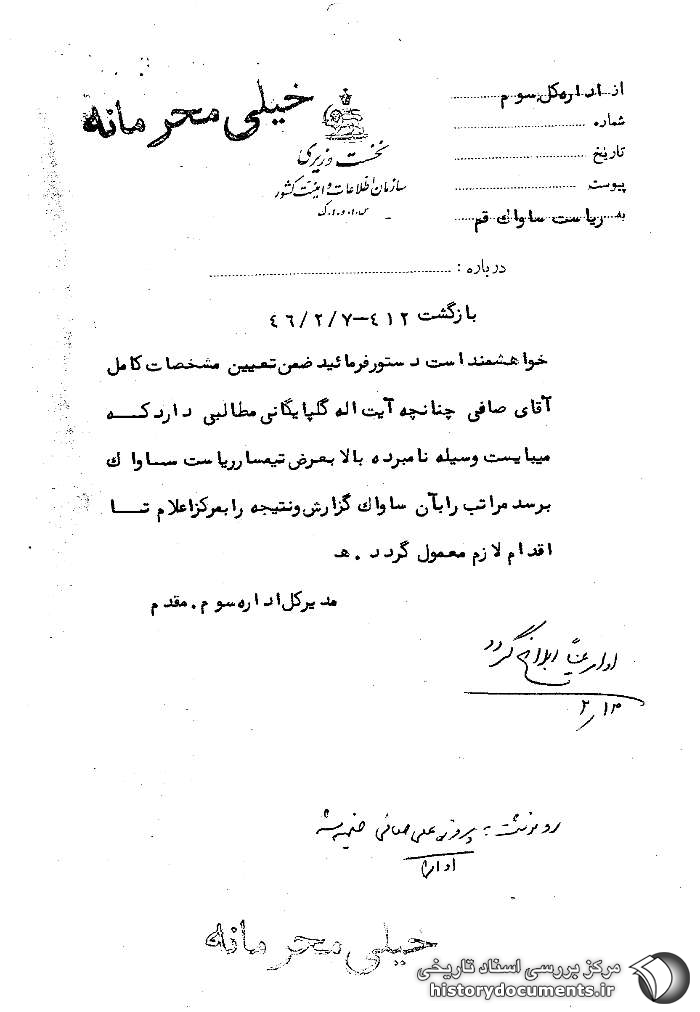 خیلی محرمانه
نخست وزیری
سازمان اطلاعات و امنیت کشور
س.ا.و.ا.ک
از اداره کل سوم
شماره
تاریخ
پیوست
به ریاست ساواک قم
درباره :
بازگشت ٤١٢-٤٦/٢/٧
خواهشمند است دستور فرمائید ضمن تعیین مشخصات کامل
آقای صافی چنانچه آیت اله گلپایگانی مطالبی دارد که
میبایست وسیله نامبرده بالا بعرض تیمسار ریاست ساواک
برسد مراتب را بآن ساواک گزارش و نتیجه را بمرکز اعلام تا
اقدام لازم معمول گردد . هـ
مدیرکل اداره سوم . مقدم
ابلاغ گردد
رونوشت به پرونده علی صافی ضمیمه شد
خیلی محرمانه
مرکز بررسی اسناد تاریخی
historydocuments.ir